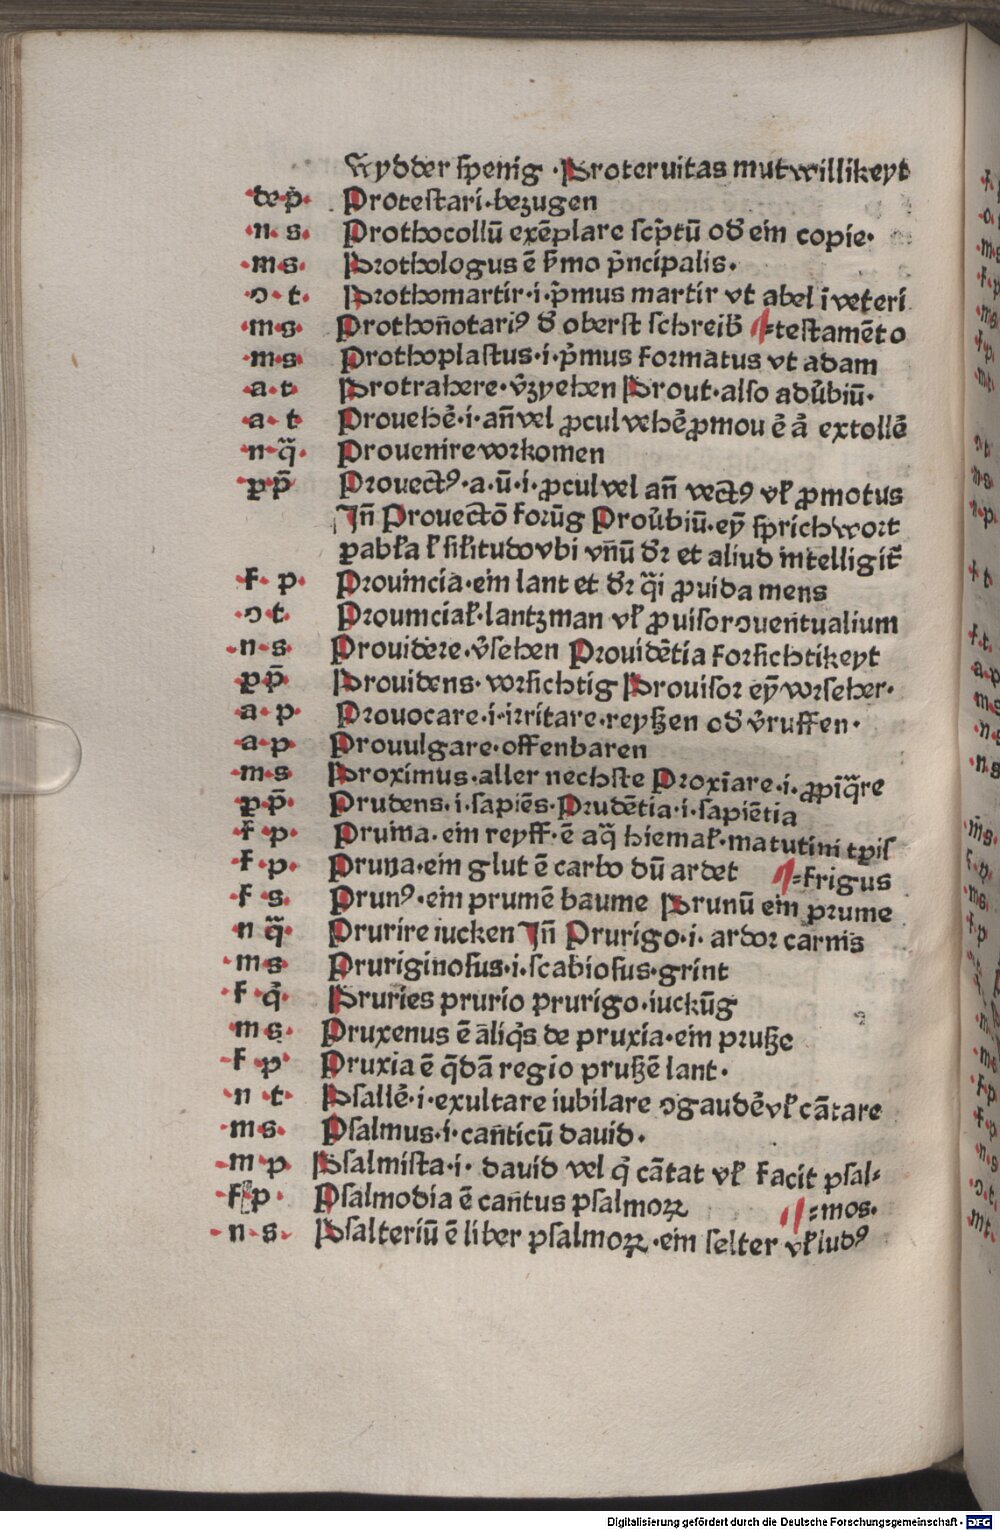 wydder spenig · Proteruitas mutwillikeyt
·de·p̄· Protestari·bezugen
·n· s· Prothocollū exēplare scp̄tū od̄ ein copie·
·m·s· Prothologus ē ẜmo p̄ncipalis·
·ɔ· t· Prothomartir·i·p̄mus martir vt abel i veteri
·m·s· Prothon̄otariꝰ d̄ oberst schreib̄ ¶=testamēto
·m·s· Prothoplastus·i·p̄mus formatus vt adam
·a·t· Protrahere·v̄zyehen Prout·also adūbiū·
·a· t· Prouehē·i·an̄ vel ꝓcul vehē ꝓmouēā extollē
·n·q̄· Prouenire vorkomen
·ꝑp̄· Prouectꝰ·a·ū·i·ꝓcul vel an̄ vectꝰ vł ꝓmotus
Jn̄ Prouectō forūg Proūbiū·ey̅ sprichwort
pabła ł silitudo vbi vnū dr̄ et aliud intelligit̄
·f· p· Prouincia·ein lant et dr̄ q̄i ꝓuida mens
·ɔ·t· Prouinciał·lantzman vł ꝓuisor ɔuentualium
·n·s· Prouidere·v̄sehen Prouidētia forsichtikeyt
ꝑp̄ Prouidens·vorsichtig Prouisor ey̅ vorseher·
·a· p· Prouocare·i·irritare·reyßen od̄ v̄ruffen·
·a·p· Prouulgare·offenbaren
·m·s Proximus·aller nechste Proxīare·i·ꝓpīq̄re
ꝑp̄· Prudens·i·sapiēs·Prudētia·i·sapiētia
·f· p· Pruina·ein reyff·ē aq̄ hiemał·matutini tp̄is
·f· p· Pruna·ein glut ē carbo dū ardet ¶=frigus
·f s· Prunꝰ·ein prumē baume Prunū ein prume
·n q̄· Prurire iucken Jn̄ Prurigo·i· ardor carnis
·m s Pruriginosus·i·scabiosus·grint
·f ·q̄· Pruries prurio prurigo·iuckūg
·m s· Pruxenus ē āliq̄s de pruxia·ein pruße
·f ·p· Pruxia ē q̄dā regio prußē lant·
·n ·t· Psallē·i·exultare iubilare ɔgaudē vł cātare
·m·s· Psalmus·i·can̄ticū dauid·
·m p Psalmista·i· dauid vel q̄ cātat vł facit psal=
·f p· Psalmodia ē can̄tus psalmoꝝ ¶=mos·
·n·s· Psalteriū ē liber psalmoꝝ·ein selter vł ludꝰ
Digitalisierung gefördert durch die Deutsche Forschungsgemeinschaft - DFG